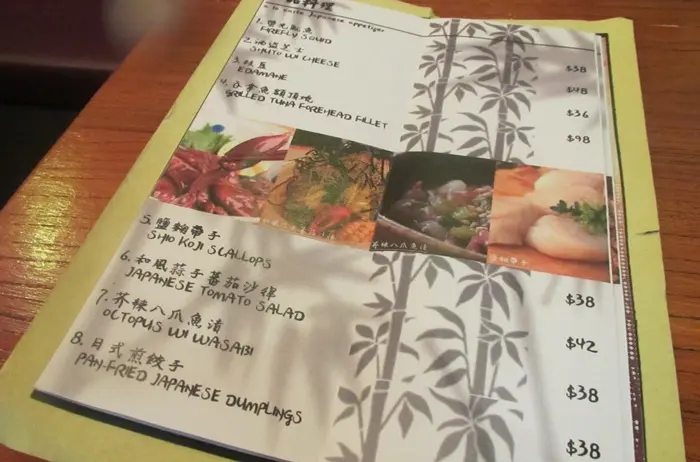 品料理
a la carte Japanese appetiser
1. 螢光魷魚
FIREFLY SQUID
$38
2. 酒盜芝士
SHUTO W/ CHEESE
$48
3. 枝豆
EDAMAME
$36
4. 吞拿魚額頂燒
GRILLED TUNA FOREHEAD FILLET
$98
芥辣八爪魚漬
帶子
5. 鹽麴帶子
SHIO KOJI SCALLOPS
$38
6. 和風蒜子蕃茄沙律
JAPANESE TOMATO SALAD
$42
7. 芥辣八爪魚漬
OCTOPUS W/ WASABI
$38
8. 日式煎餃子
PAN-FRIED JAPANESE DUMPLINGS
$38